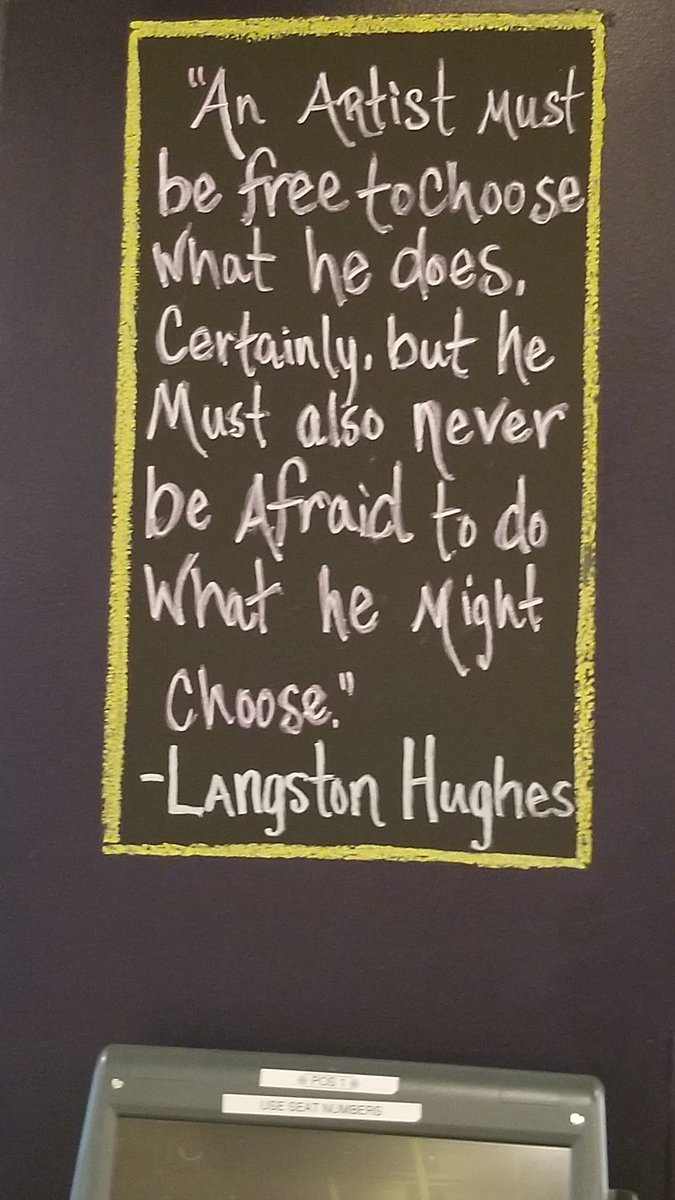 "An Artist Must
be free to choose
What he does.
Certainly, but he
Must also never
be Afraid to do
What he Might
Choose."
-Langston Hughes
POS 1
USE SEAT NUMBERS